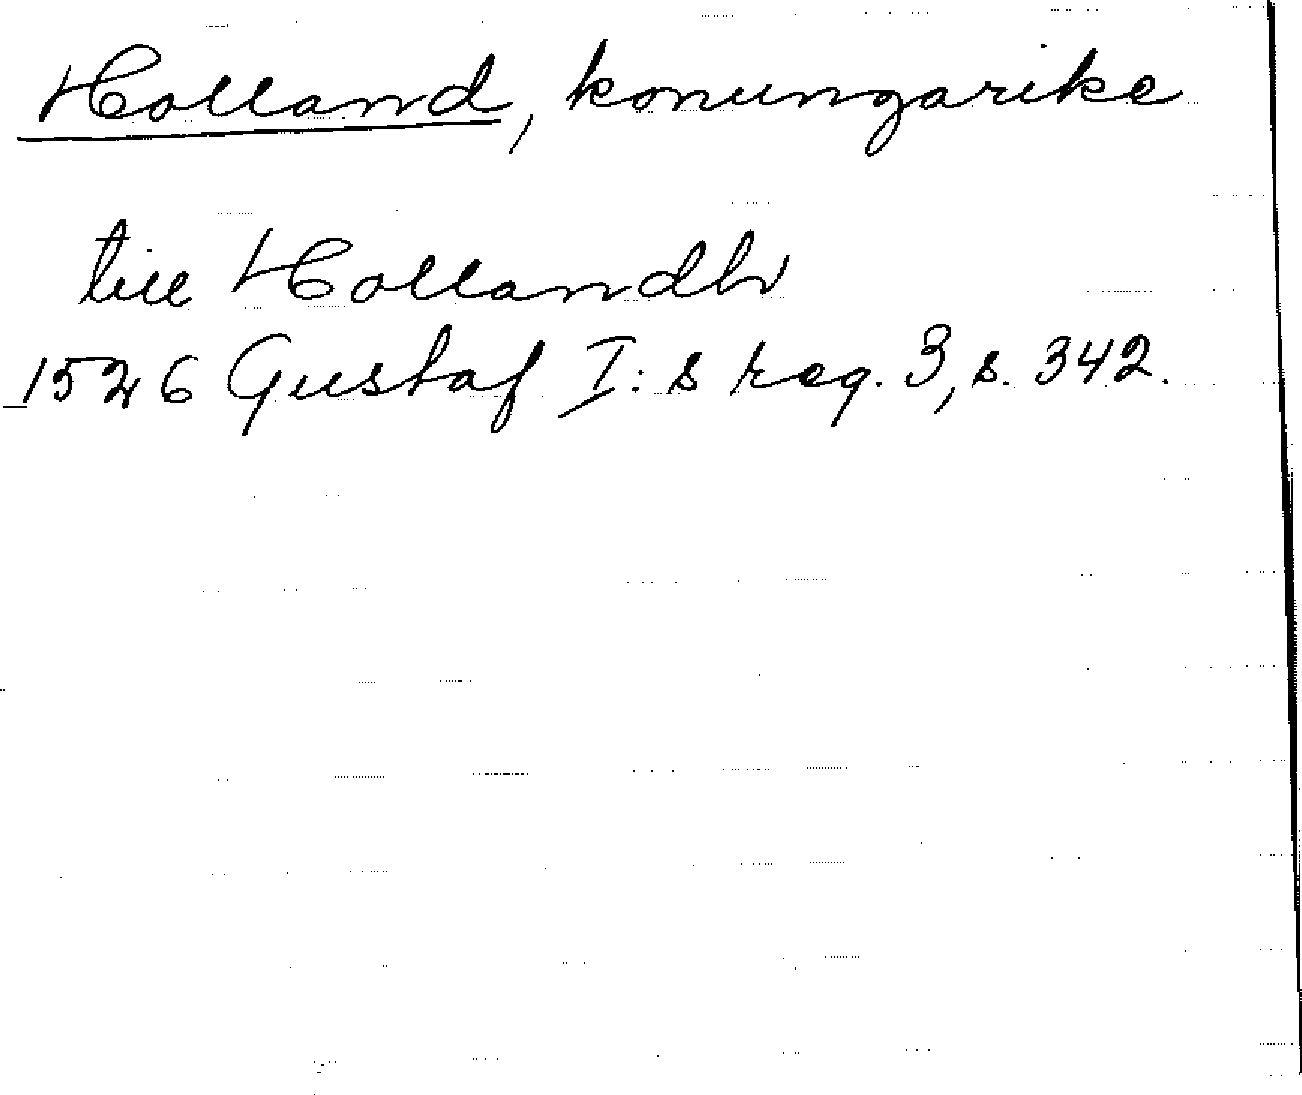 Holland, konungarike
till Hollandh
1526 Gustaf I:s reg. 3, s. 342.